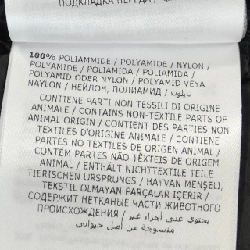 ПОДКЛАДКА
100% POLIAMMIDE / POLYAMIDE / NYLON /
POLYAMIDE / POLIAMIDA / POLIAMIDA /
POLYAMID ODER NYLON / POLYAMID VEYA
NAYLON / НЕЙЛОН, ПОЛИАМИД /
CONTIENE PARTI NON TESSILI DI ORIGINE
ANIMALE / CONTAINS NON-TEXTILE PARTS OF
ANIMAL ORIGIN / CONTIENT DES PARTIES NON
TEXTILES D'ORIGINE ANIMALE / CONTIENE
PARTES NO TEXTILES DE ORIGEN ANIMAL /
CONTÉM PARTES NÃO TÊXTEIS DE ORIGEM
ANIMAL / ENTHÄLT NICHTTEXTILE TEILE
TIERISCHEN URSPRUNGS / HAYVAN MENŞELİ,
TEKSTİL OLMAYAN PARÇALAR İÇERİR /
СОДЕРЖИТ НЕТКАНЫЕ ЧАСТИ ЖИВОТНОГО
ПРОИСХОЖДЕНИЯ / يحتوي على أجزاء غير
منسوجة من أصل حيواني